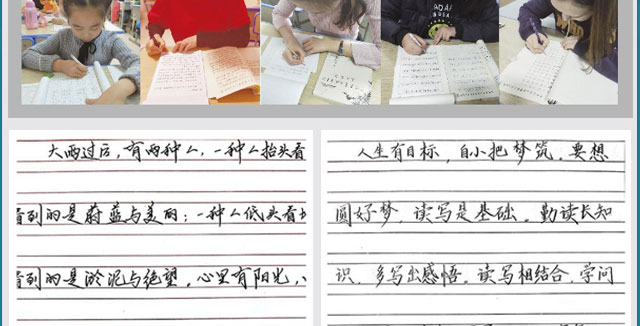 大雨过后，有两种人，一种人抬头看
看到的是蔚蓝与美丽；一种人低头看
看到的是淤泥与绝望，心里有阳光，
人生有目标，自小把梦筑，要想
圆好梦，读写是基础。勤读长知
识，多写出感悟。读写相结合，学问